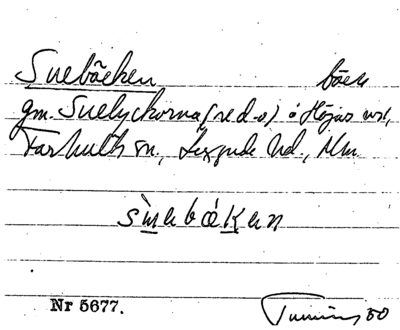 Snebäcken bäck
gm. Snelyckorna (red-o) å Höjas
Farhult sn, Luggude hd, Mlm
snebäken
Nr 5677.
50